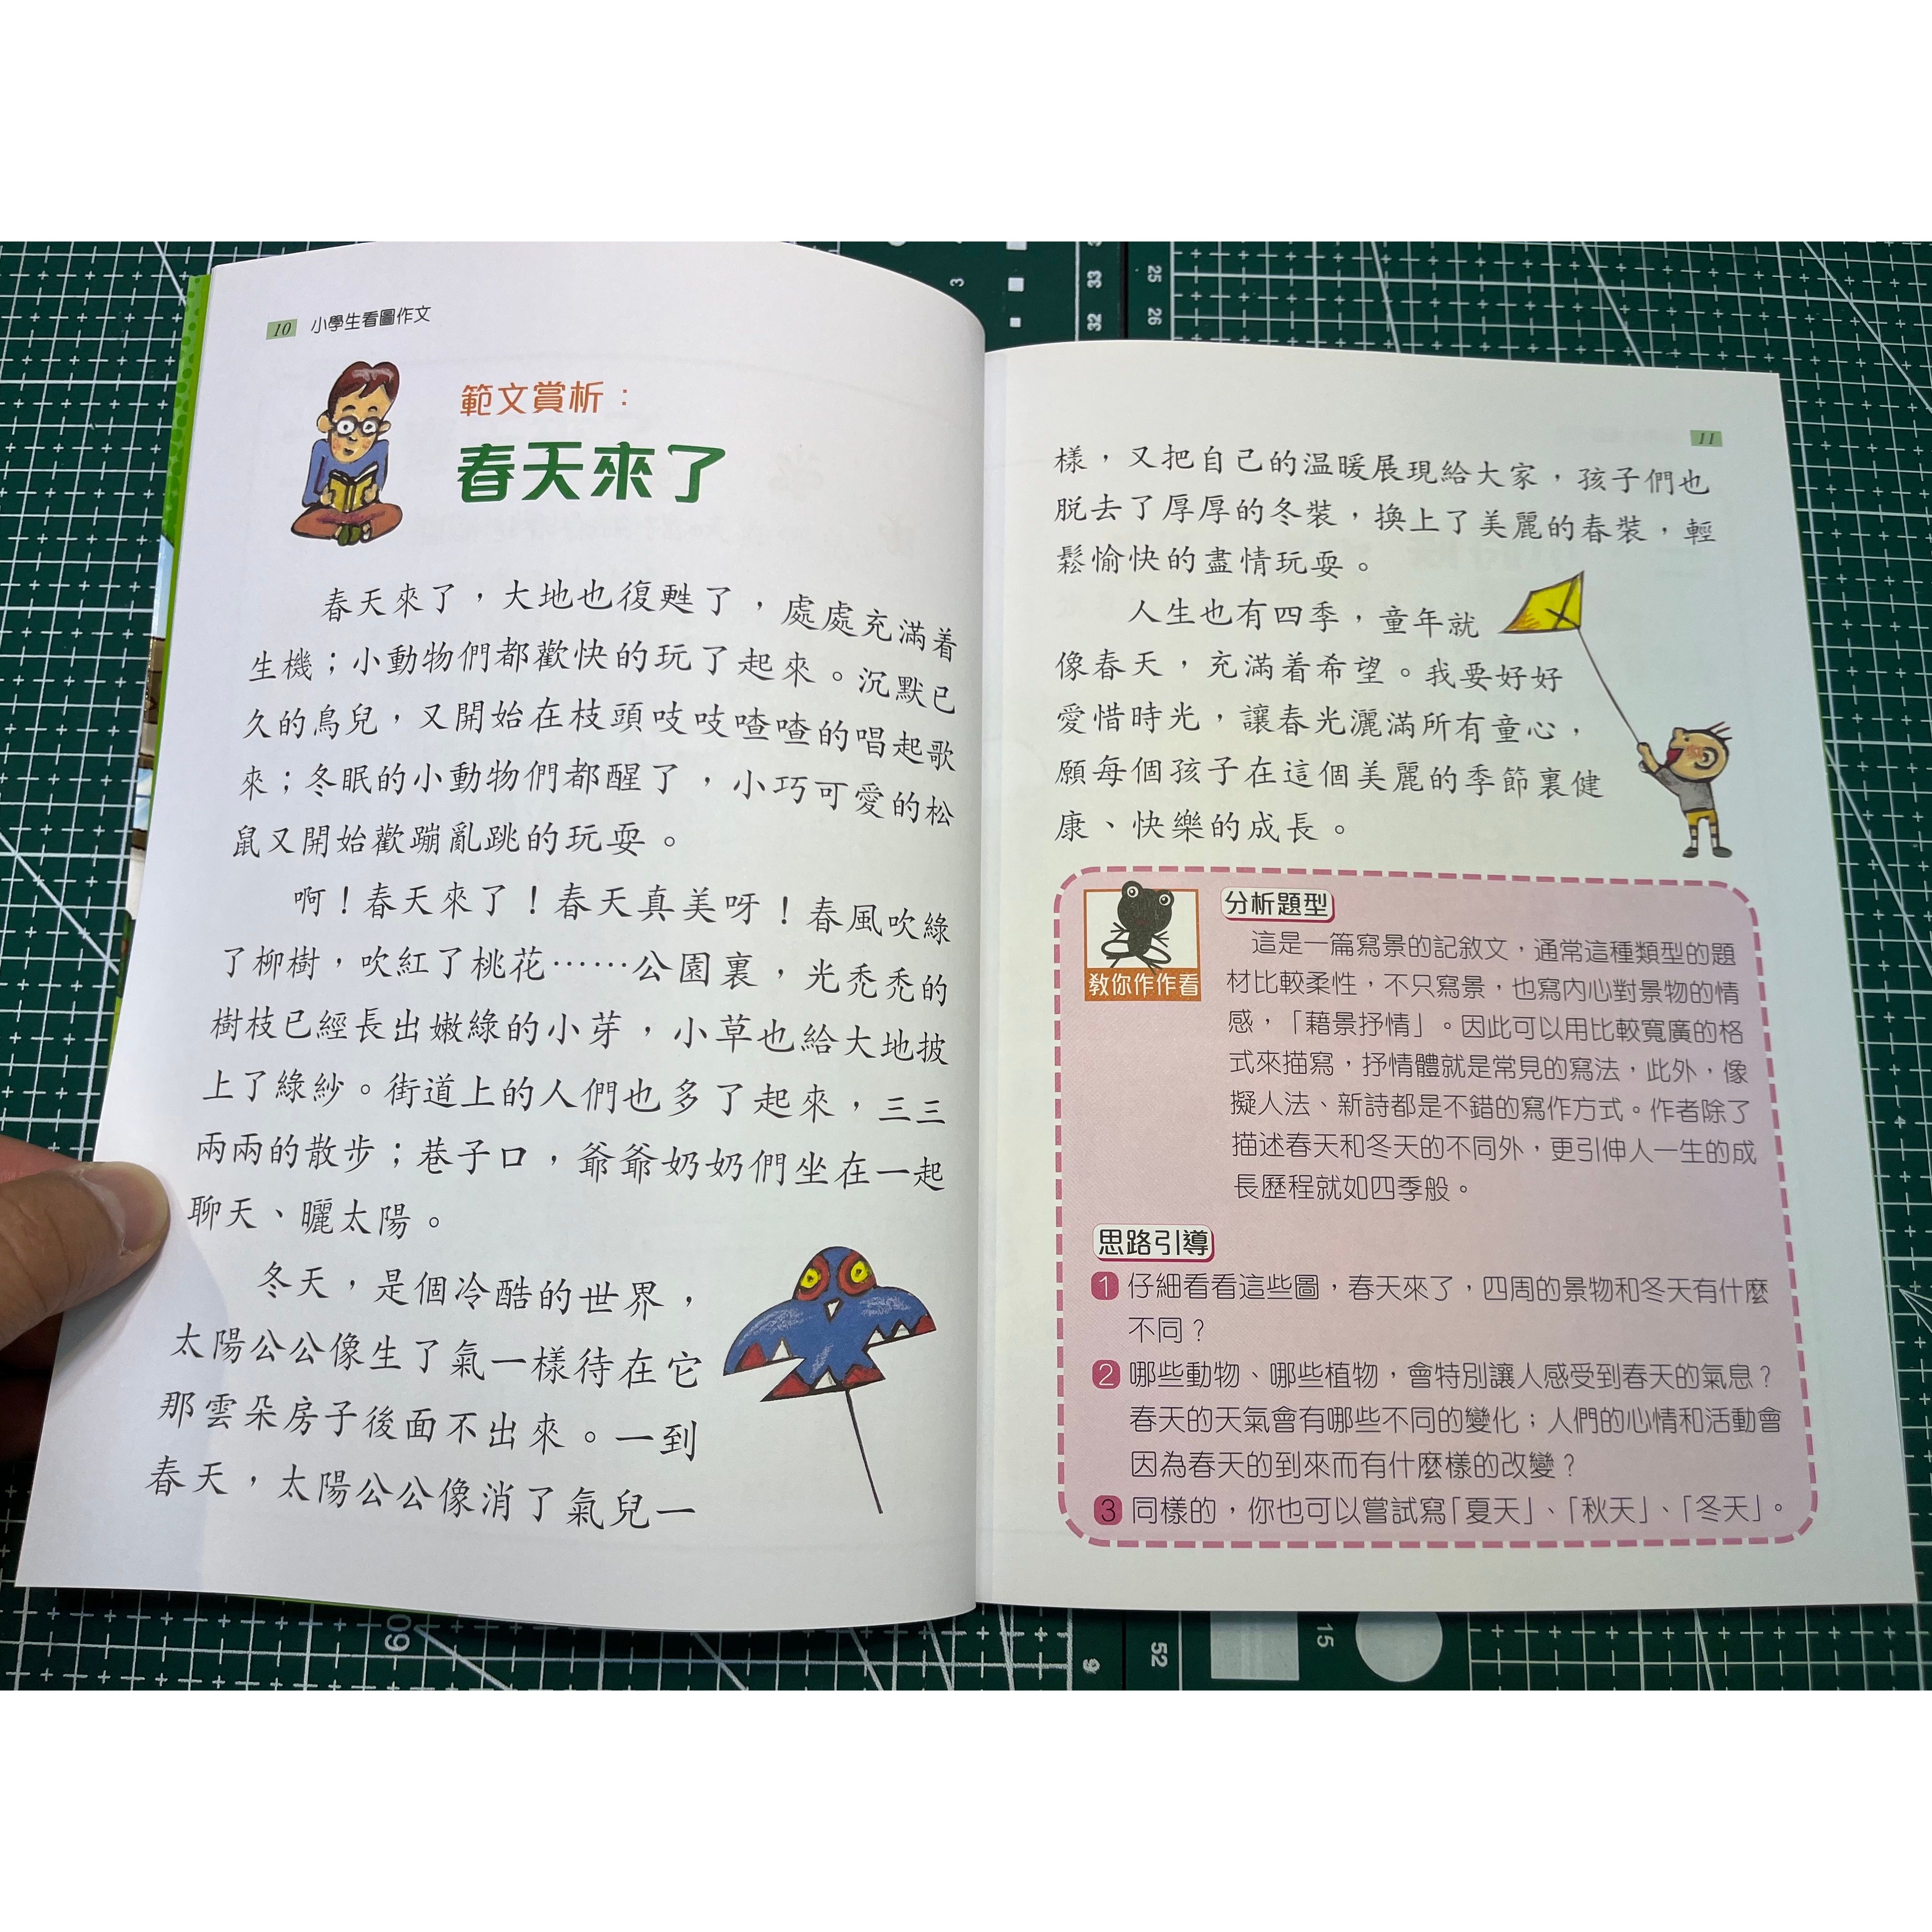 10 小學生看圖作文
範文賞析：
春天來了
春天來了，大地也復甦了，處處充滿着
生機；小動物們都歡快的玩了起來。沉默已
久的鳥兒，又開始在枝頭吱吱喳喳的唱起歌
來；冬眠的小動物們都醒了，小巧可愛的松
鼠又開始歡蹦亂跳的玩耍。
啊！春天來了！春天真美呀！春風吹綠
了柳樹，吹紅了桃花……公園裏，光禿禿的
樹枝已經長出嫩綠的小芽，小草也給大地披
上了綠紗。街道上的人們也多了起來，三三
兩兩的散步；巷子口，爺爺奶奶們坐在一起
聊天、曬太陽。
冬天，是個冷酷的世界，
太陽公公像生了氣一樣待在它
那雲朵房子後面不出來。一到
春天，太陽公公像消了氣兒一
11
樣，又把自己的溫暖展現給大家，孩子們也
脫去了厚厚的冬裝，換上了美麗的春裝，輕
鬆愉快的盡情玩耍。
人生也有四季，童年就
像春天，充滿着希望。我要好好
愛惜時光，讓春光灑滿所有童心，
願每個孩子在這個美麗的季節裏健
康、快樂的成長。
教你作作看
分析題型
這是一篇寫景的記敘文，通常這種類型的題
材比較柔性，不只寫景，也寫內心對景物的情
感，「藉景抒情」。因此可以用比較寬廣的格
式來描寫，抒情體就是常見的寫法，此外，像
擬人法、新詩都是不錯的寫作方式。作者除了
描述春天和冬天的不同外，更引伸人一生的成
長歷程就如四季般。
思路引導
1 仔細看看這些圖，春天來了，四周的景物和冬天有什麼
不同？
2 哪些動物、哪些植物，會特別讓人感受到春天的氣息？
春天的天氣會有哪些不同的變化；人們的心情和活動會
因為春天的到來而有什麼樣的改變？
3 同樣的，你也可以嘗試寫「夏天」、「秋天」、「冬天」。
3
33
32
25
26
60
9
52
15